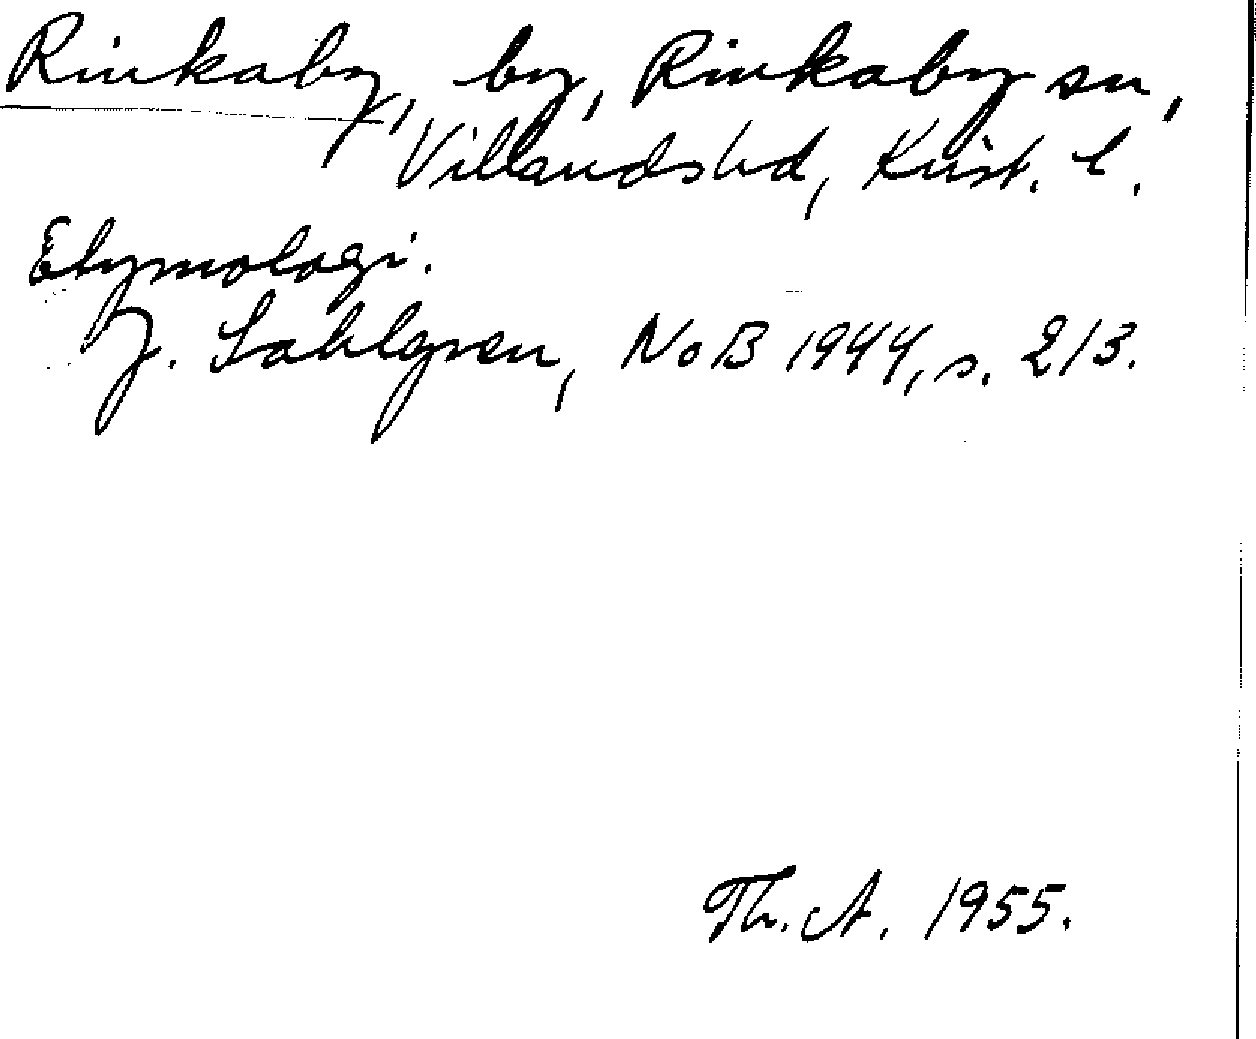 Rinkaby, by, Rinkaby sn,
Villandshd, Krist. l.
Etymologi.
J. Sahlgren, NoB 1944, s. 213.
Th. A. 1955.